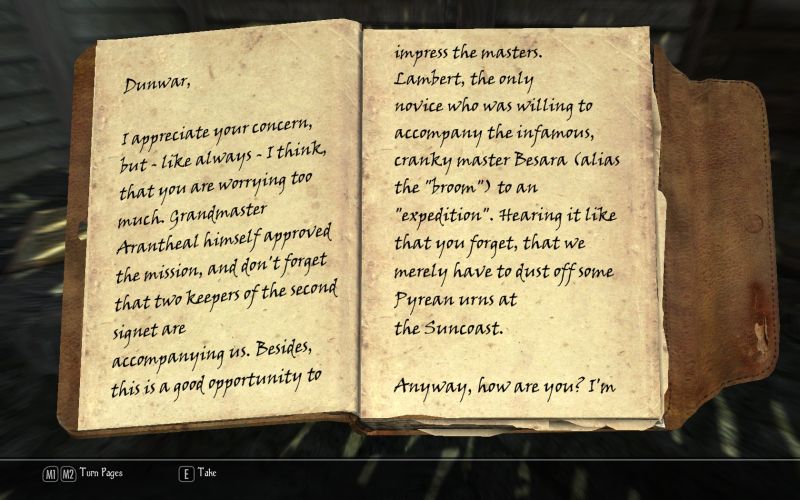 Dunwar,
I appreciate your concern,
but - like always - I think,
that you are worrying too
much. Grandmaster
Arantheal himself approved
the mission, and don't forget
that two keepers of the second
signet are
accompanying us. Besides,
this is a good opportunity to
impress the masters.
Lambert, the only
novice who was willing to
accompany the infamous,
cranky master Besara (alias
the "broom") to an
"expedition". Hearing it like
that you forget, that we
merely have to dust off some
Pyrean urns at
the Suncoast.
Anyway, how are you? I'm
M1 M2 Turn Pages
E Take